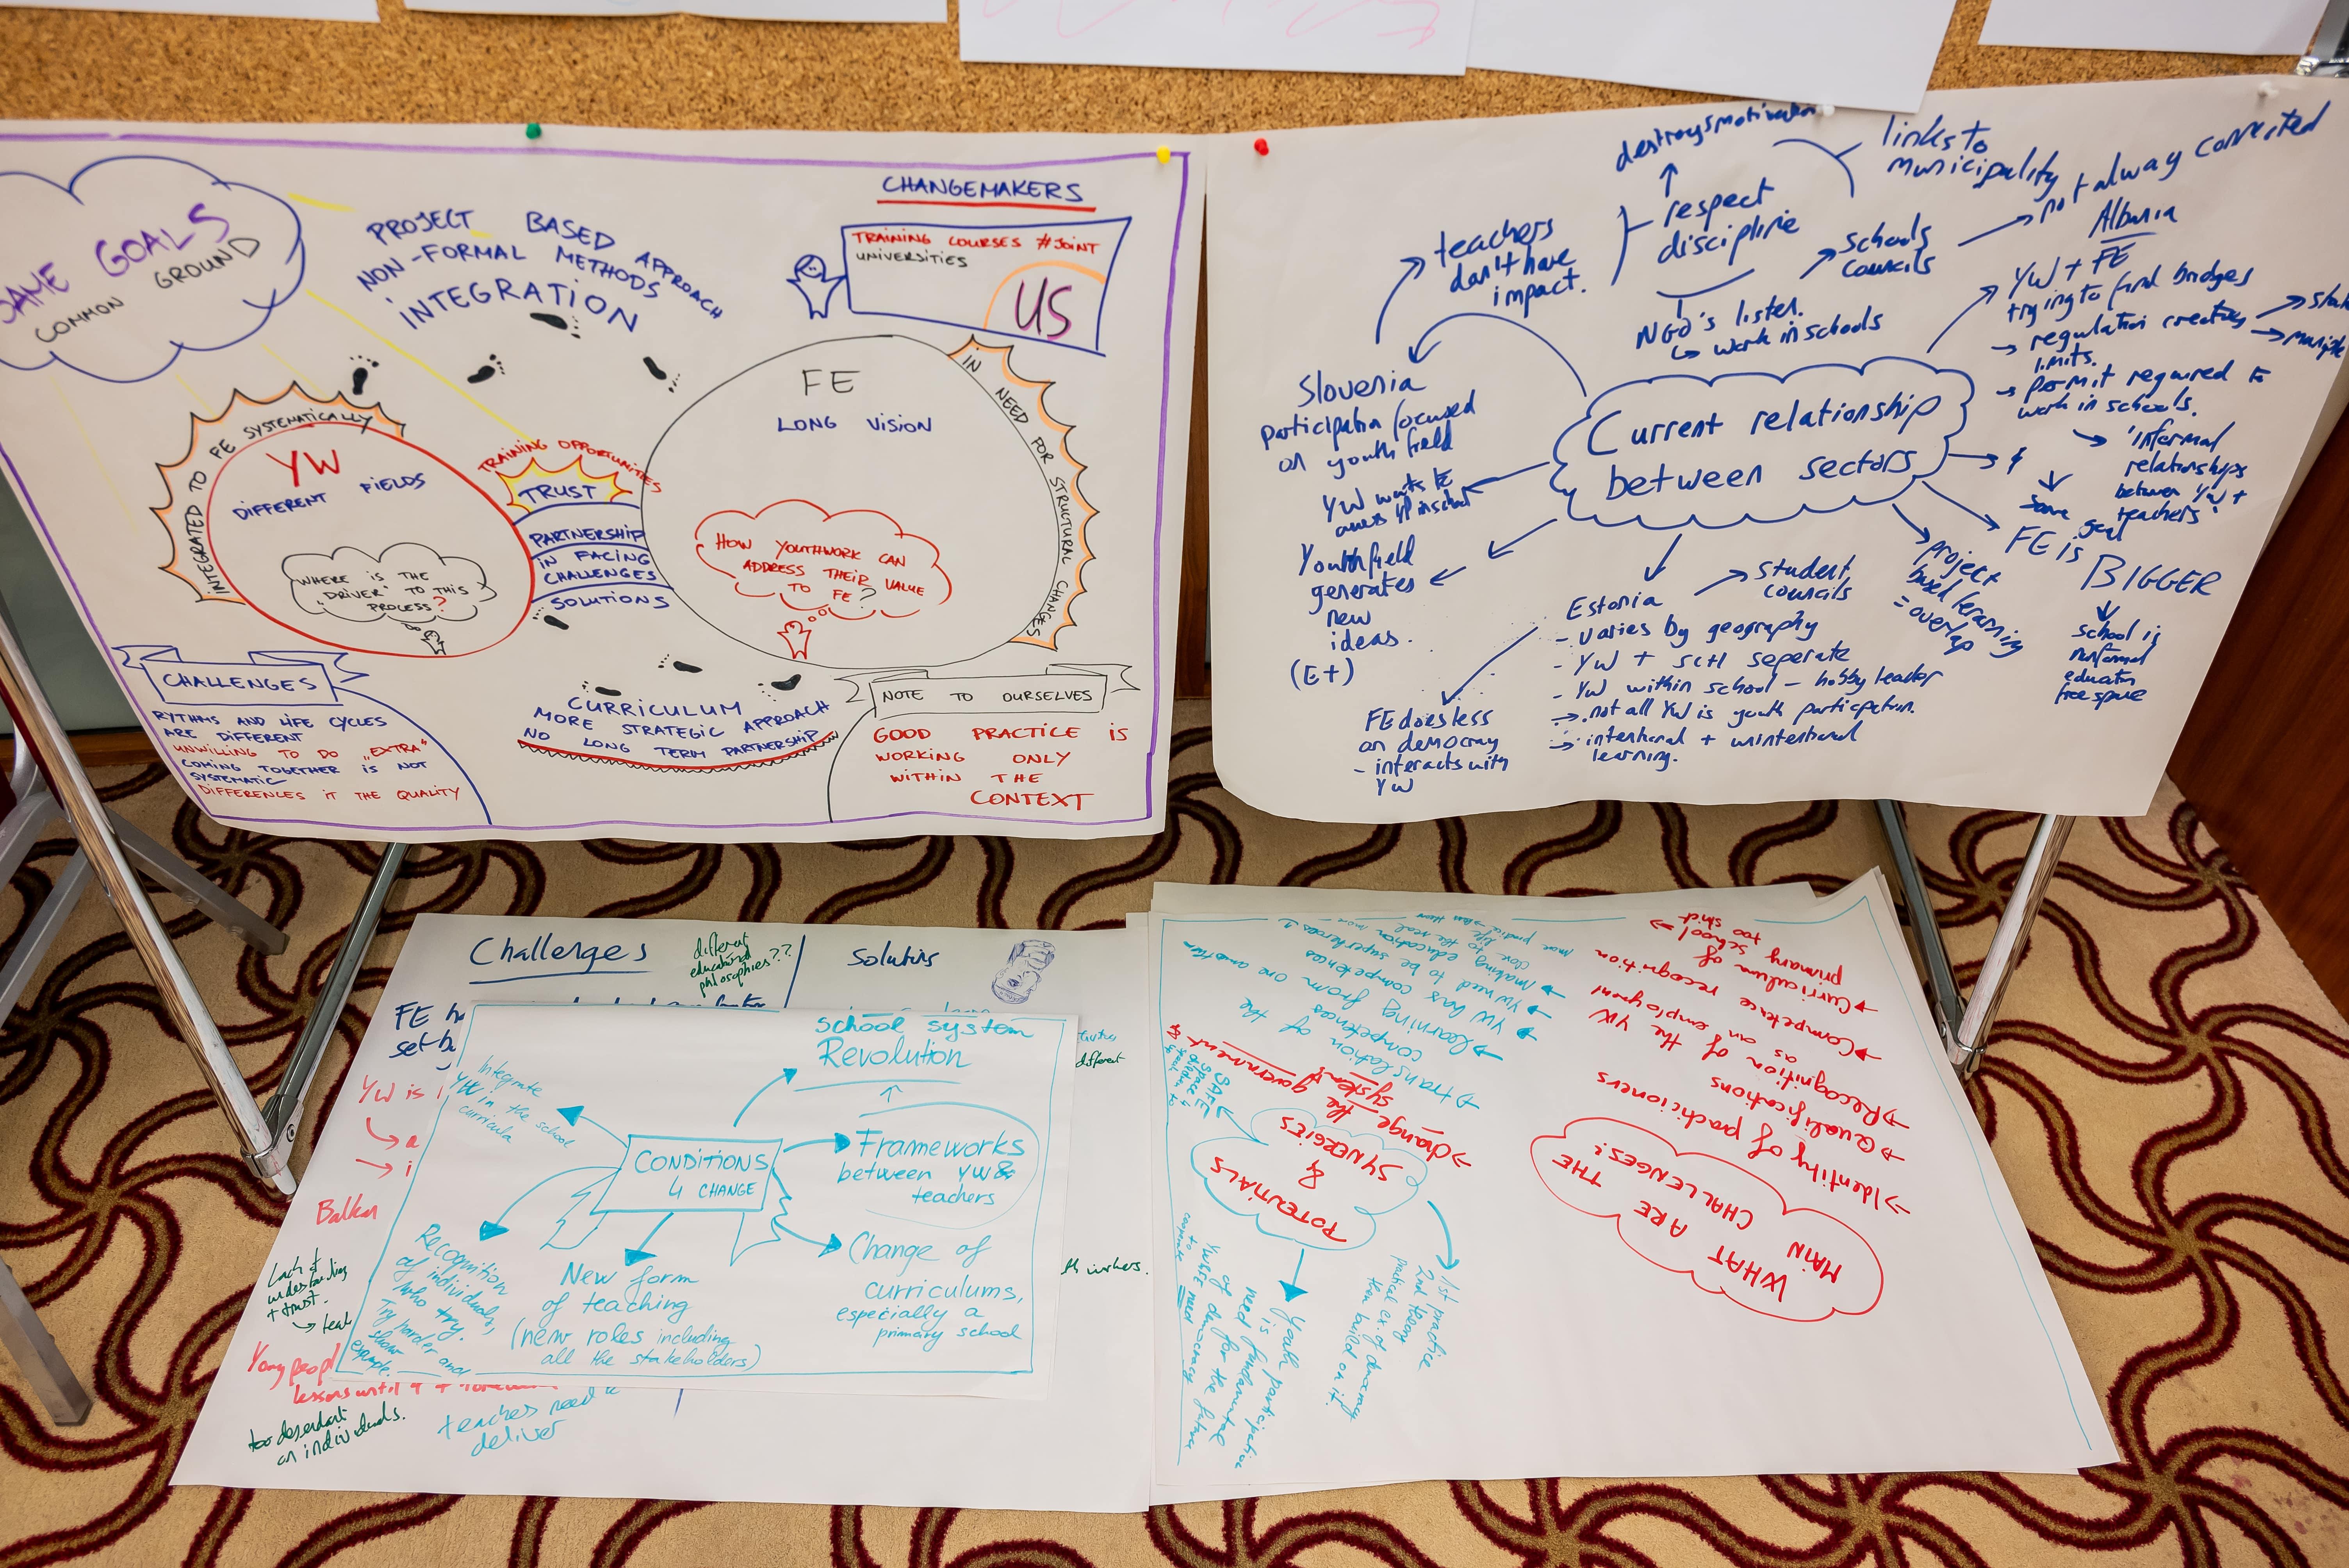 SAME GOALS
COMMON GROUND
PROJECT BASED APPROACH
NON-FORMAL METHODS
INTEGRATION
CHANGEMAKERS
TRAINING COURSES #JOINT
UNIVERSITIES
US
INTEGRATED TO FE SYSTEMATICALLY
YW
DIFFERENT FIELDS
WHERE IS THE
"DRIVER" TO THIS
PROCESS?
TRAINING OPPORTUNITIES
TRUST
PARTNERSHIP
IN FACING
CHALLENGES
SOLUTIONS
FE
LONG VISION
HOW YOUTHWORK CAN
ADDRESS THEIR VALUE
TO FE?
IN NEED FOR STRUCTURAL CHANGES
CHALLENGES
RYTHMS AND LIFE CYCLES
ARE DIFFERENT
UNWILLING TO DO „EXTRA"
COMING TOGETHER IS NOT
SYSTEMATIC
DIFFERENCES IT THE QUALITY
CURRICULUM
MORE STRATEGIC APPROACH
NO LONG TERM PARTNERSHIP
NOTE TO OURSELVES
GOOD PRACTICE IS
WORKING ONLY
WITHIN THE
CONTEXT
destroys motivation
links to
municipality
respect
discipline
teachers
don't have
impact.
NGO's listen.
work in schools
schools
councils
not alway connected
Albania
YW + FE
trying to find bridges
regulation creating
limits.
permit required to
work in schools.
'informal
relationships
between YW +
teachers'
Current relationship
between sectors
Slovenia
participation focused
on youth field
YW wants to
Youthfield
generates
new
ideas.
(E+)
FE does less
on democracy
- interacts with
YW
Estonia
student
councils
- varies by geography
- YW + sch seperate
- YW within school - hobby leader
not all YW is youth participation.
intentional + unintentional
learning.
project
based learning
= overlap
same
goal
FE is
BIGGER
school is
nonformal
education
free space
Challenges
different
educational
philosophies??
Solutins
FE
set
YW is
Balkan
Lack of
understanding
+ trust.
too dependant
on individuals.
teaches need to
deliver
different
School system
Revolution
Integrate
YW in the school
curricula
CONDITIONS
4 CHANGE
Frameworks
between YW &
teachers
Change of
curriculums,
especially a
primary school
New form
of teaching
(new roles including
all the stakeholders)
Recognition
of individuals,
who try.
Try harder and
show
example.
WHAT ARE THE
MAIN CHALLENGES?
→ Identity of practicioners
→ Qualifications
→ Recognition of the YW
as an employment
→ Competence recognition
→ Curriculum of
primary school
too strict
POTENTIALS
&
SYNERGIES
→ change the government
system!
→ translation of the
competences
→ learning from one another
→ YW has competences
→ YW need to be superheroes
SAFE
space
youth participation
is fundamental
need for the future
of democracy
1st practice
2nd theory
practical ex of democracy
then build on it.